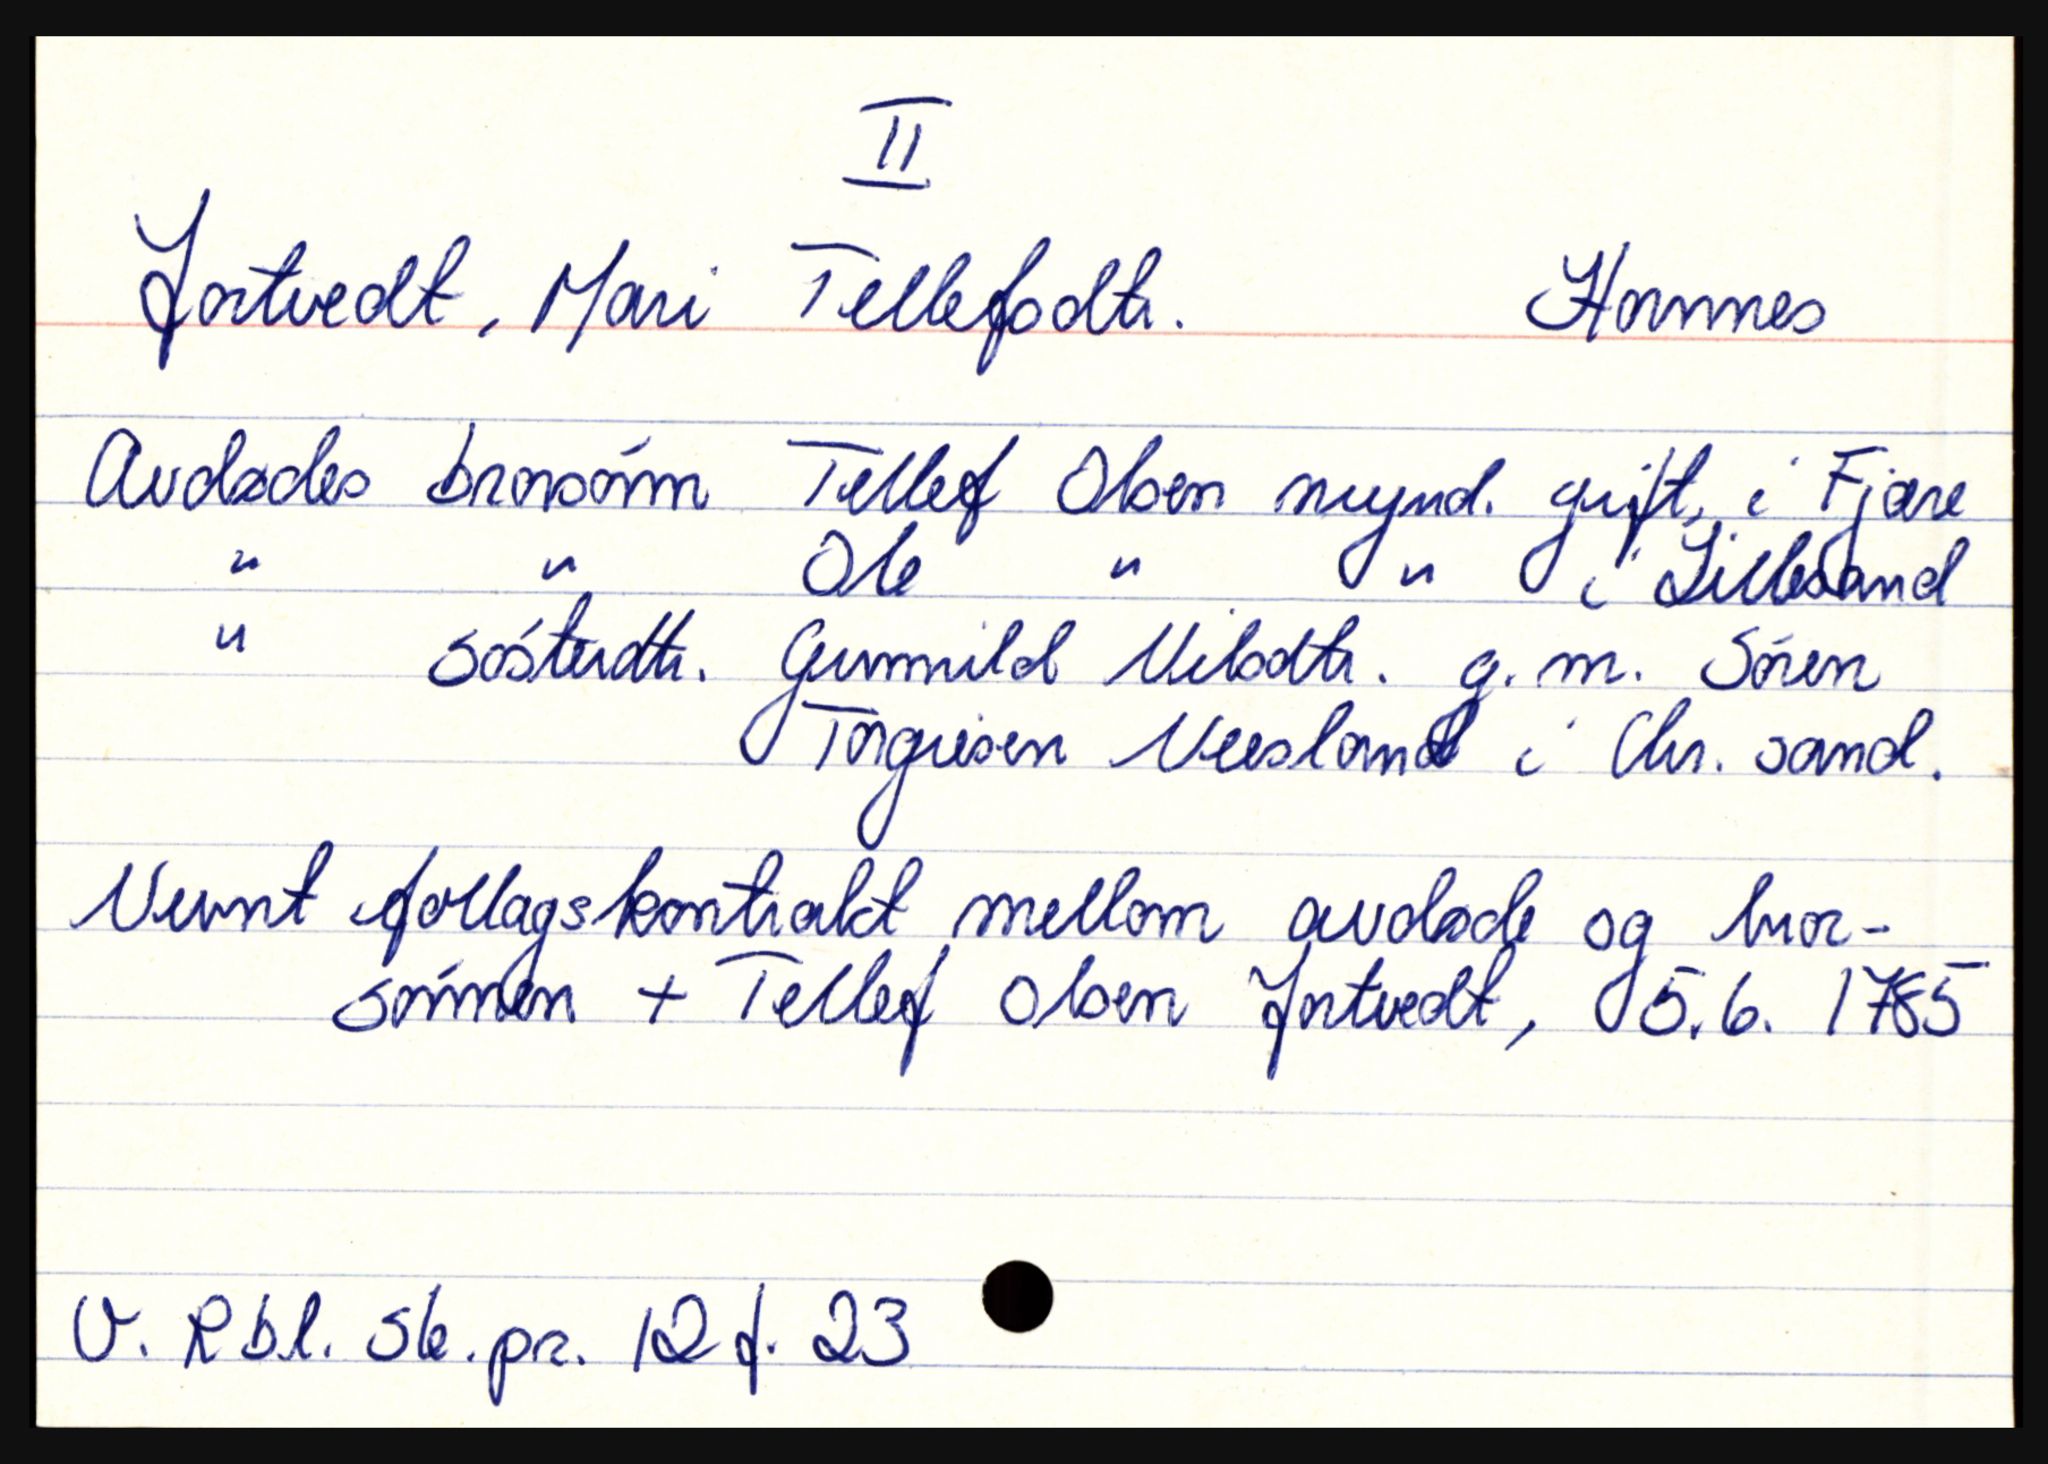 II
Jortvedt, Mari Tellefsdtr. Hornnes
Avdødes brorsönn Tellef Olsen mynd. gift, i Fjære
" " Ole " " i Lillesand
" sösterdtr. Gunnild Nilsdtr. g. m. Sören
Torgiusen Neesland i Chr. sand.
Nevnt follagskontrakt mellom avdøde og bror-
sönnen + Tellef Olsen Jortvedt, 5.6. 1785
V. Rbl. Sk. pr. 12 f. 23